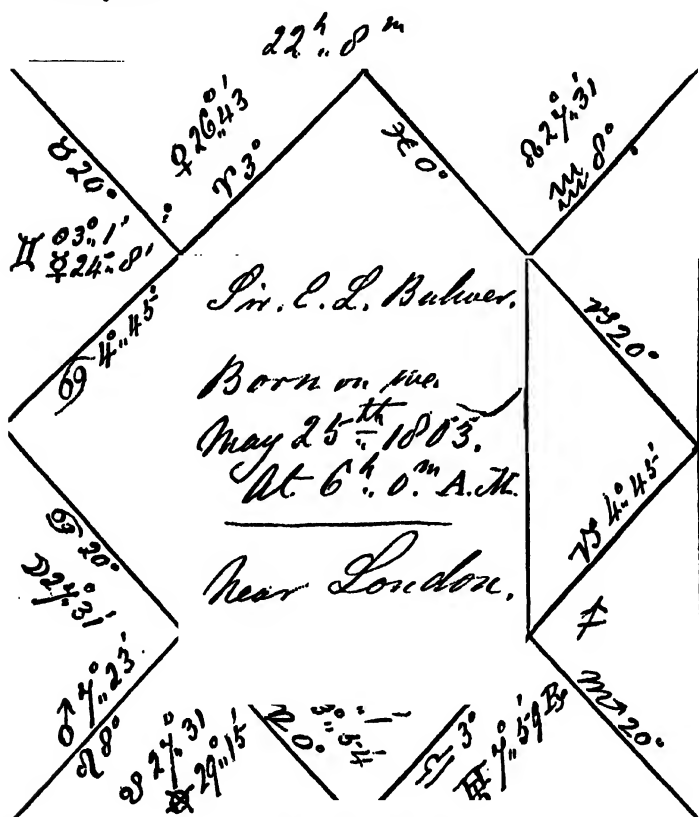 22ʰ 8ᵐ
♀ 26°43'
♈ 3°
♓ 0°
☊ 27°31'
♒ 8°
♉ 20°
♊ ☉ 3°1'
☿ 24°8'
♋ 4°45'
Sir. E. L. Bulwer.
Born on
May 25th 1803.
At 6ʰ 0ᵐ A.M.
Near London.
♑ 20°
♑ 4°45'
♐
♏ 20°
♋ 20°
☽ 27°31'
♂ 7°23'
♌ 8°
☋ 27°31'
29°15'
0°
♎ 3°
♅ 7°59 ℞